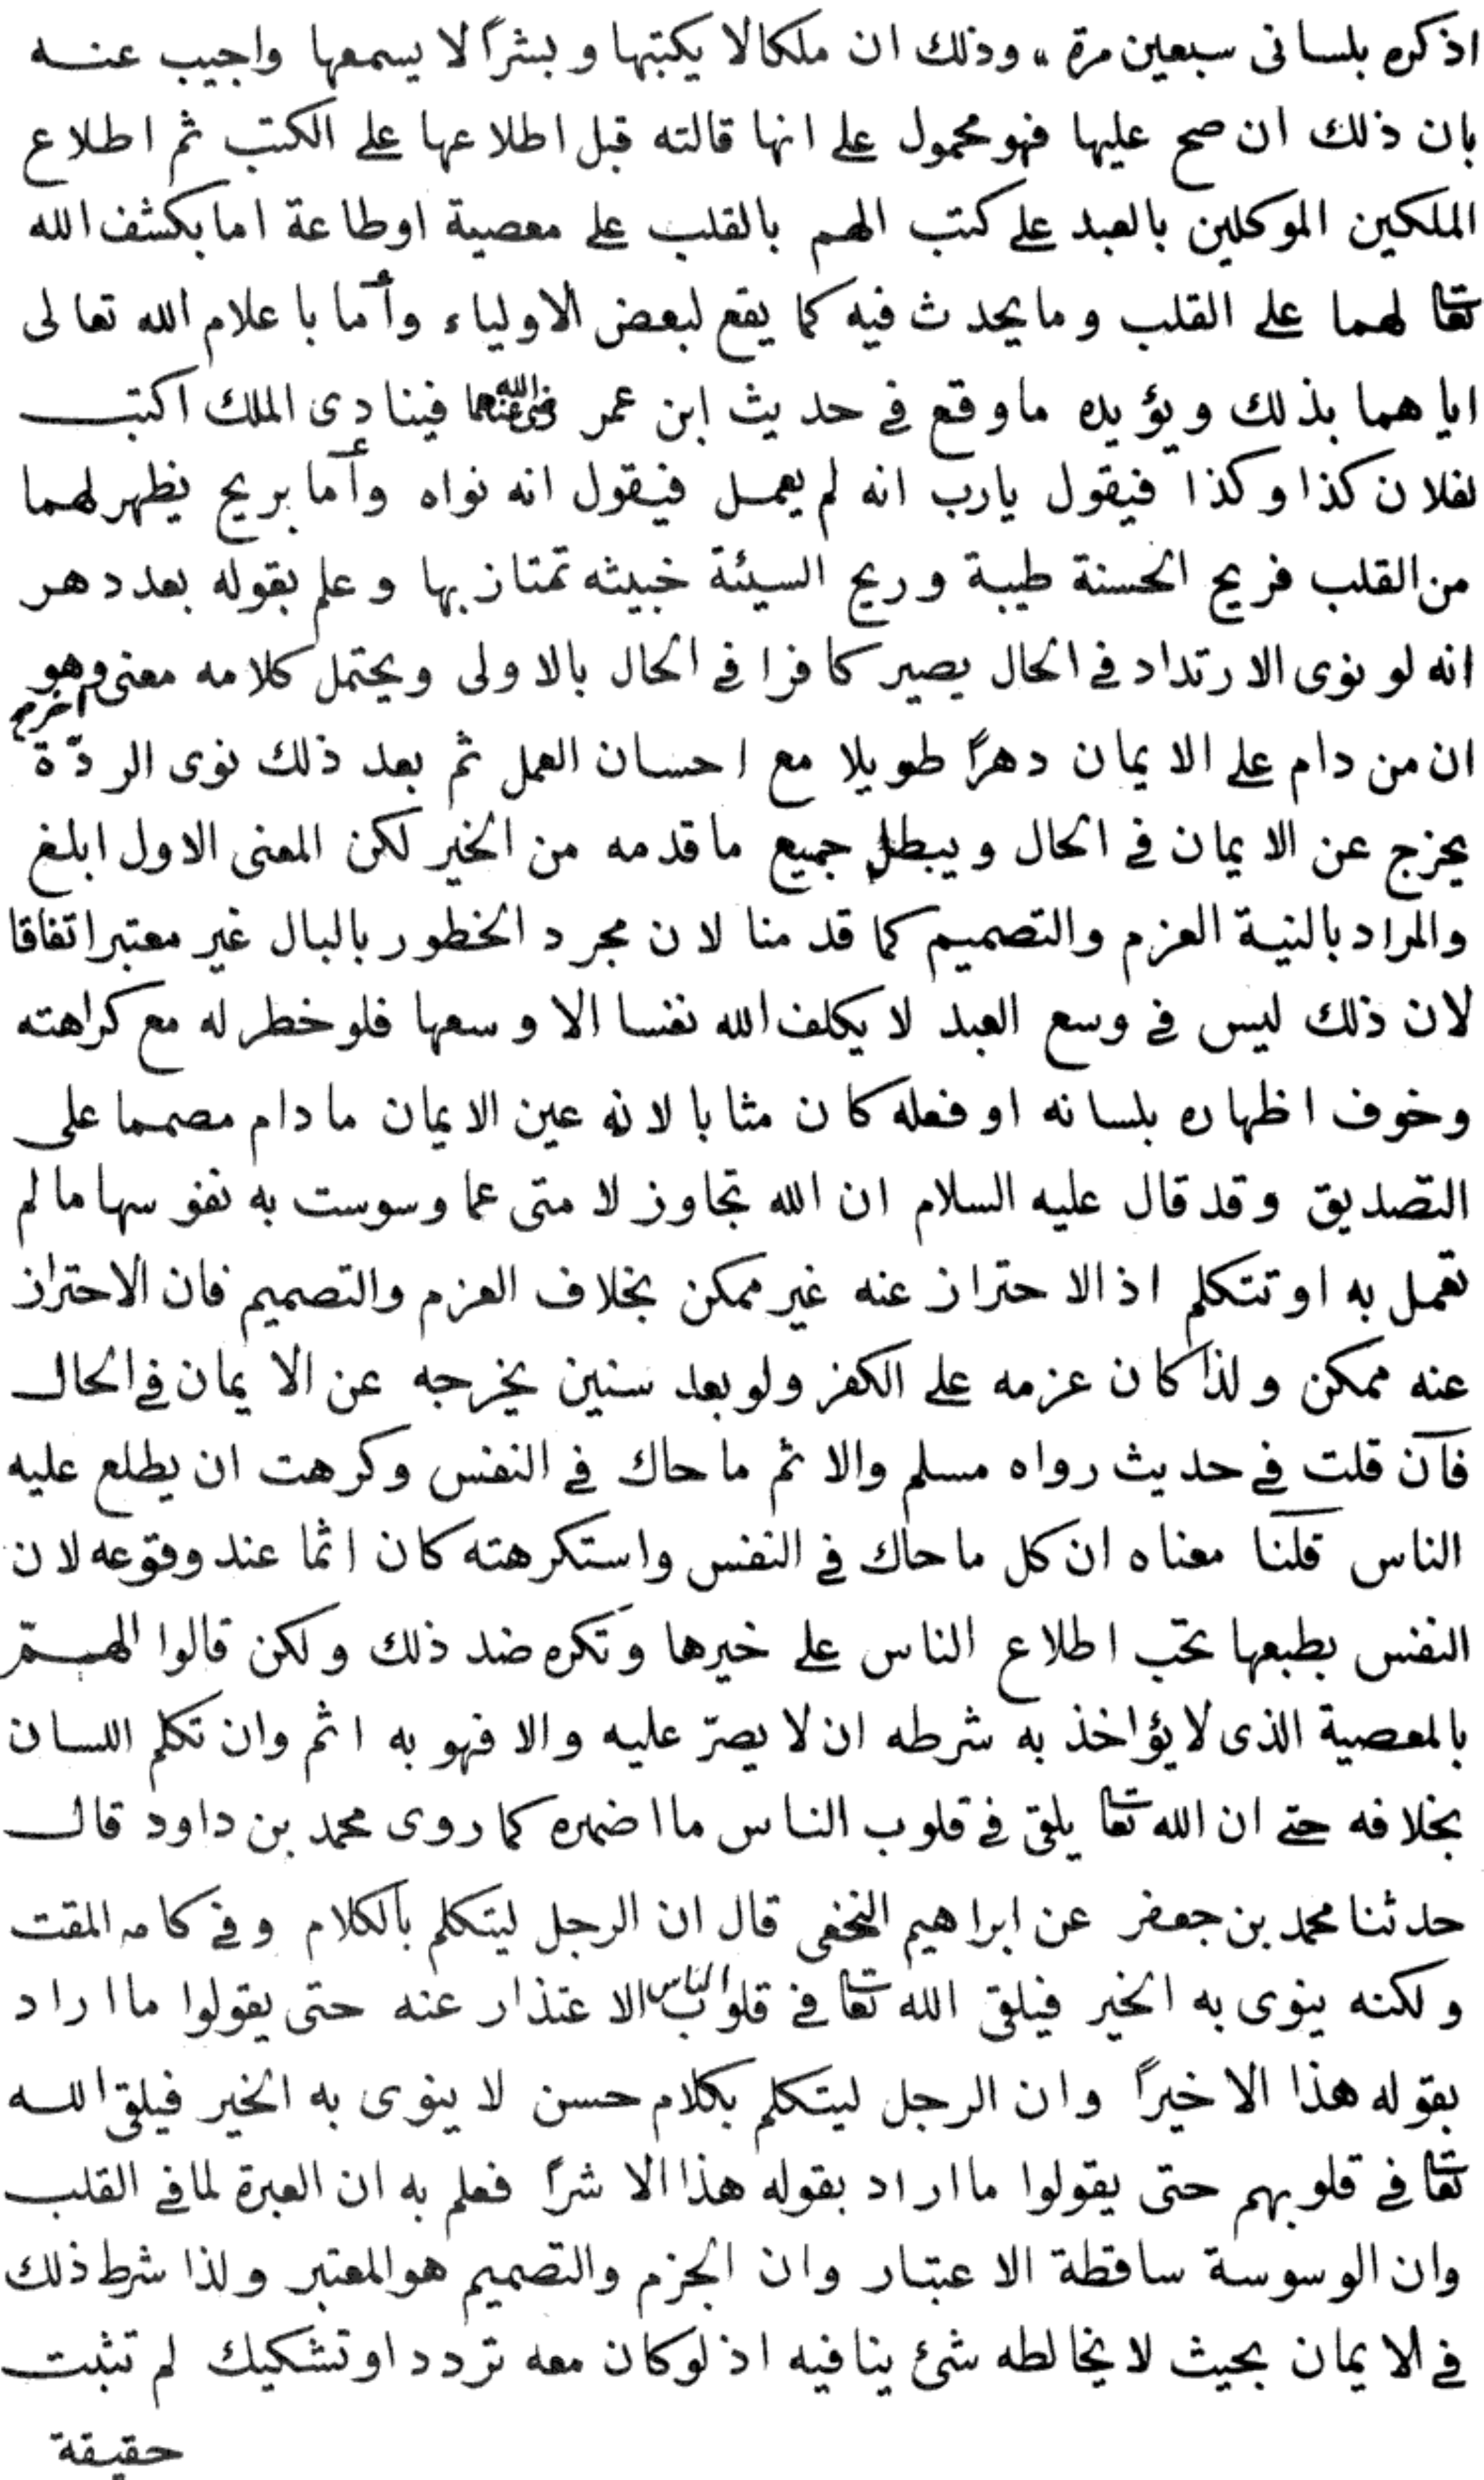 اذكره بلسانى سبعين مرة „ وذلك ان ملكا لا يكتبها و بشرًا لا يسمعها واجيب عنه
بان ذلك ان صح عليها فهو محمول على انها قالته قبل اطلاعها على الكتب ثم اطلاع
الملكين الموكلين بالعبد على كتب الهم بالقلب على معصية اوطاعة اما بكشف الله
تعا لهما على القلب وما يحدث فيه كما يقع لبعض الاولياء وأما با علام الله تعالى
اياهما بذلك ويؤيده ماوقع في حديث ابن عمر رضى الله عنهما فينادى الملك اكتب
لفلان كذا وكذا فيقول يارب انه لم يعمل فيقول انه نواه وأما بريح يظهر لهما
من القلب فريح الحسنة طيبة وريح السيئة خبيثه تمتاز بها وعلم بقوله بعد دهر
انه لو نوى الارتداد في الحال يصير كافرا في الحال بالاولى ويحتمل كلامه معنى آخر وهو
ان من دام على الايمان دهرًا طويلا مع احسان العمل ثم بعد ذلك نوى الردّة
يخرج عن الايمان في الحال ويبطل جميع ماقدمه من الخير لكن المعنى الاول ابلغ
والمراد بالنية العزم والتصميم كما قدمنا لان مجرد الخطور بالبال غير معتبر اتفاقا
لان ذلك ليس في وسع العبد لا يكلف الله نفسا الا وسعها فلو خطر له مع كراهته
وخوف اظهاره بلسانه او فعله كان مثابا لانه عين الايمان مادام مصمما على
التصديق وقد قال عليه السلام ان الله تجاوز لا متى عما وسوست به نفوسها مالم
تعمل به اوتتكلم اذ الاحتراز عنه غير ممكن بخلاف العزم والتصميم فان الاحتراز
عنه ممكن ولذا كان عزمه على الكفر ولوبعد سنين يخرجه عن الايمان في الحال
فان قلت في حديث رواه مسلم والاثم ماحاك في النفس وكرهت ان يطلع عليه
الناس قلنا معناه ان كل ماحاك في النفس واستكرهته كان اثما عند وقوعه لان
النفس بطبعها تحب اطلاع الناس على خيرها وتكره ضد ذلك ولكن قالوا الهمّ
بالمعصية الذى لايؤاخذ به شرطه ان لا يصرّ عليه والا فهو به اثم وان تكلم اللسان
بخلافه حتى ان الله تعا يلقى في قلوب الناس ما اضمره كما روى محمد بن داود قال
حدثنا محمد بن جعفر عن ابراهيم النخعى قال ان الرجل ليتكلم بالكلام وفي كلامه المقت
ولكنه ينوى به الخير فيلقى الله تعا في قلوب الناس الاعتذار عنه حتى يقولوا ما اراد
بقوله هذا الاخيرًا وان الرجل ليتكلم بكلام حسن لا ينوى به الخير فيلقى الله
تعا في قلوبهم حتى يقولوا ما اراد بقوله هذا الا شرًا فعلم به ان العبرة لما في القلب
وان الوسوسة ساقطة الاعتبار وان الجزم والتصميم هو المعتبر ولذا شرط ذلك
في الايمان بحيث لا يخالطه شئ ينافيه اذ لو كان معه تردد اوتشكيك لم تثبت
حقيقة